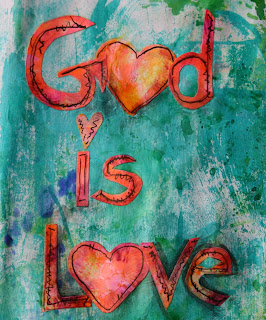 God
is
Love